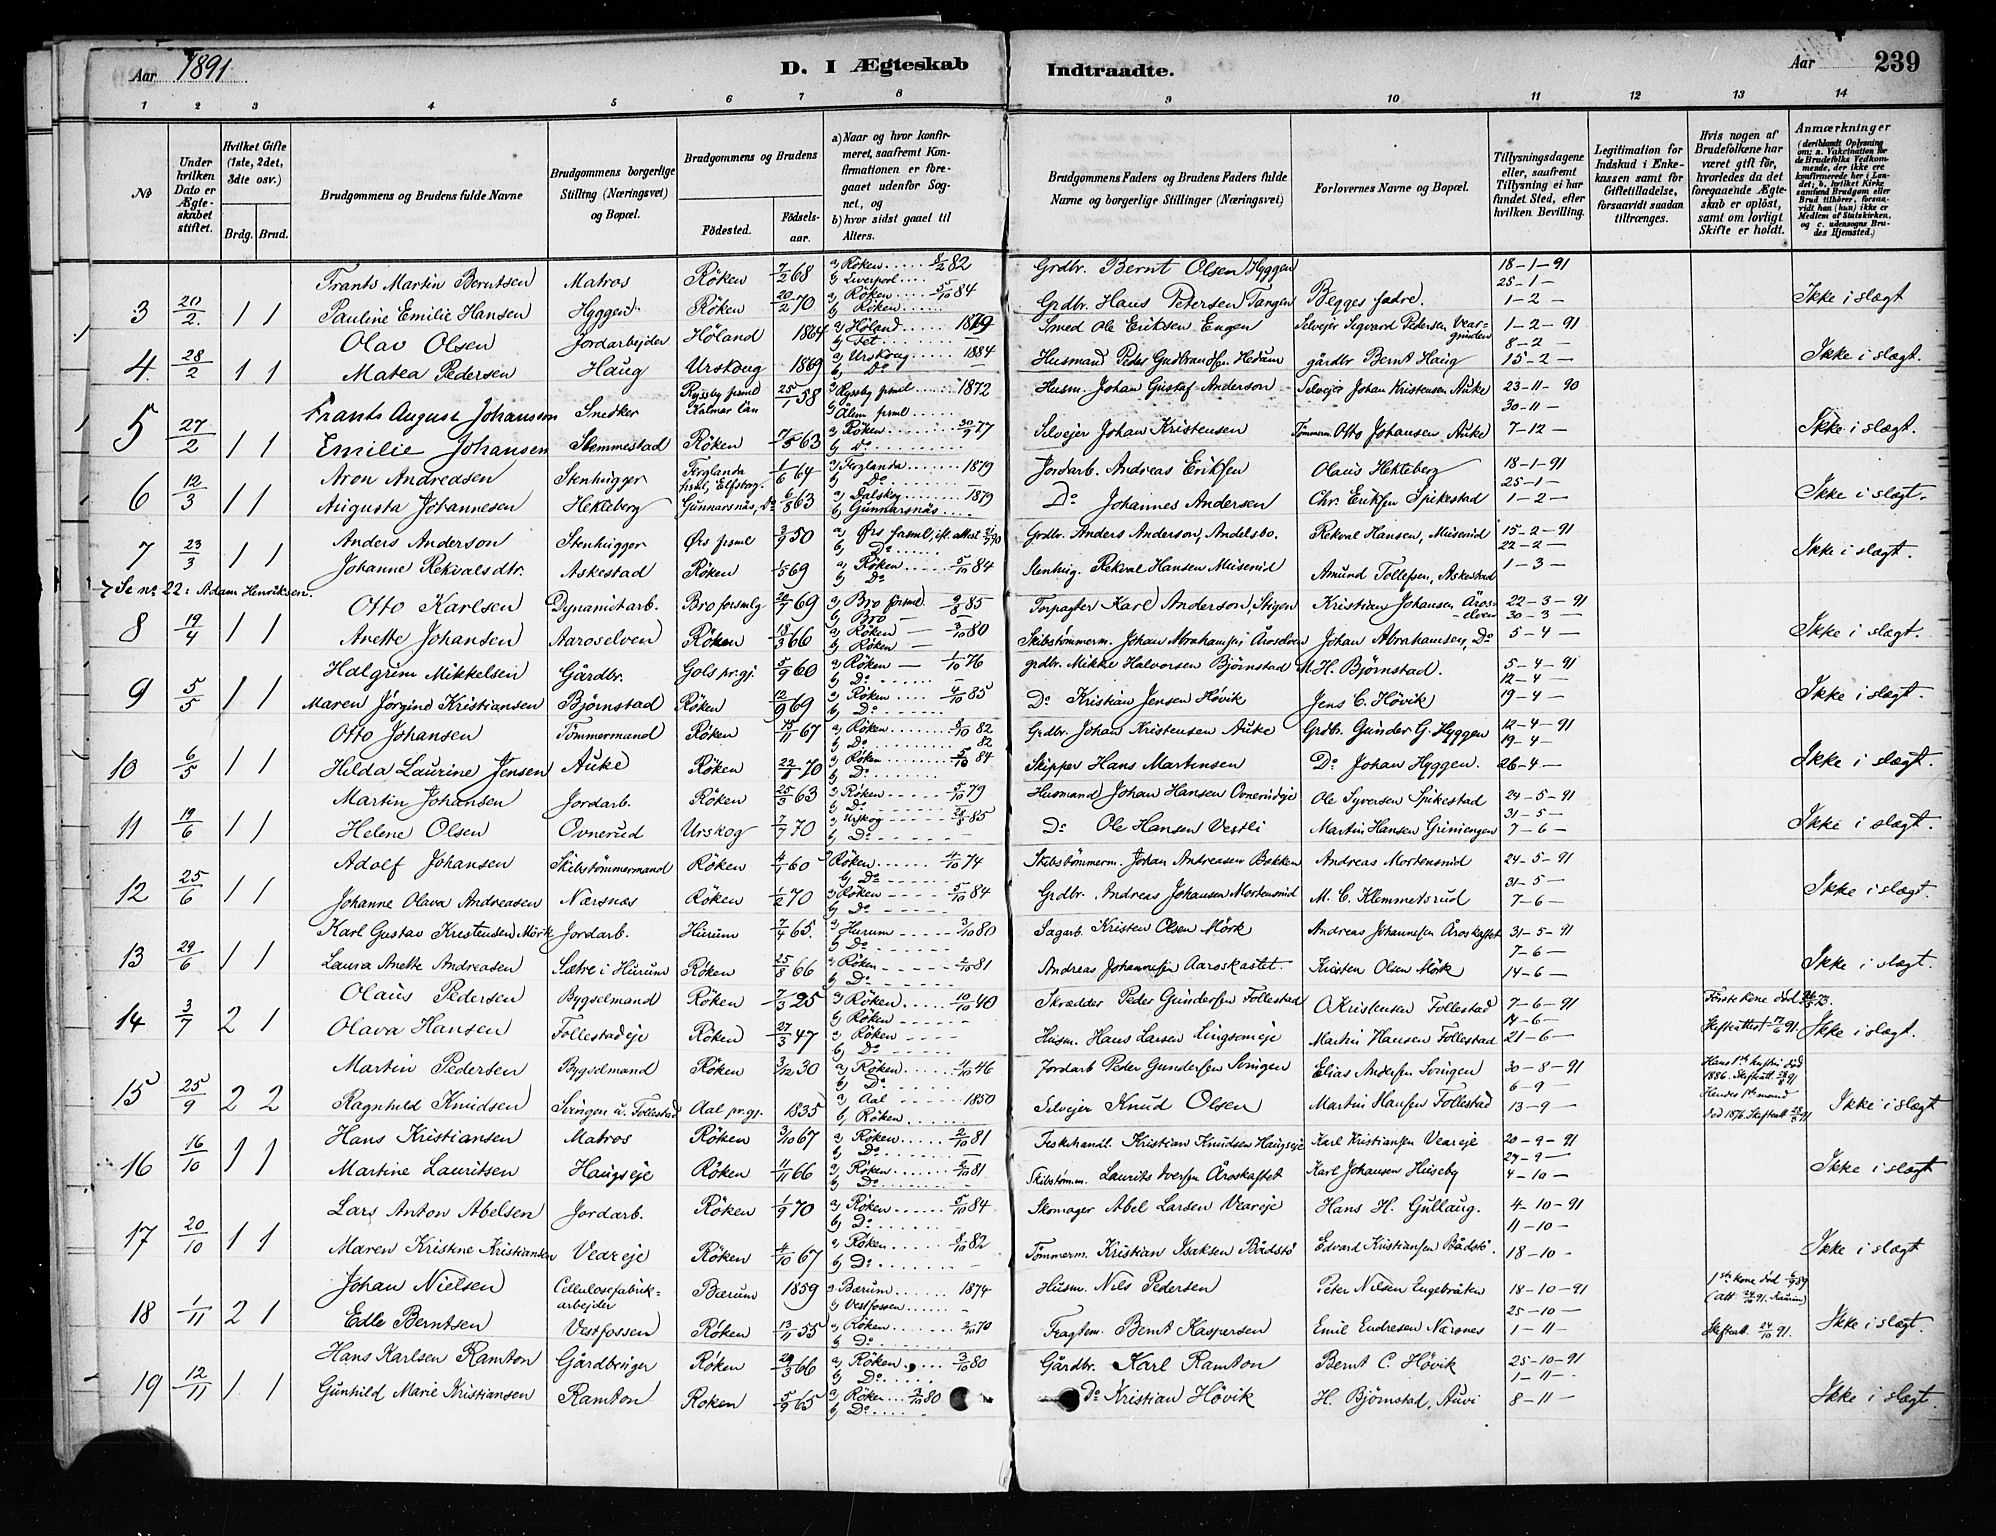 Aar 1891.
D. I Ægteskab Indtraadte.
Aar 239
1 2 3 4 5 6 7 8 9 10 11 12 13 14
No
Under hvilken Dato er Ægteskabet stiftet.
Hvilket Gifte (1ste, 2det, 3die osv.)
Brdg. Brud.
Brudgommens og Brudens fulde Navne
Brudgommens borgerlige Stilling (Næringsvei) og Bopæl.
Brudgommens og Brudens
Födested. Födselsaar.
a) Naar og hvor konfirmeret, saafremt Konfirmationen er foregaaet udenfor Sognet, og
b) hvor sidst gaaet til Alters.
Brudgommens Faders og Brudens Faders fulde Navne og borgerlige Stillinger (Næringsvei)
Forlovernes Navne og Bopæl.
Tillysningsdagene eller, saafremt Tillysning ei har fundet Sted, efter hvilken Bevilling.
Legitimation for Indskud i Enkekassen samt for Giftetilladelse, forsaavidt saadan tiltrænges.
Hvis nogen af Brudefolkene har været gift för, hvorledes da det foregaaende Ægteskab er oplöst, samt om lovligt Skifte er holdt.
Anmærkninger (deriblandt Oplysning om: a. Vakcination for de Brudefolks Vedkommende, der ikke ere konfirmerede her i Landet; b. hvilket Kirkesamfund Brudgom eller Brud tilhörer, forsaavidt han (hun) ikke er Medlem af Statskirken, og c. udensogns Brudes Hjemsted.)
Frants Martin Berntsen Matros Röken 7/2 68 a) Röken 8/2 82 Grdbr. Bernt Olsen Hyggen 18-1-91
b) Liverpool 25-1-
3 20/2 1 1 Pauline Emilie Hansen Hyggen Röken 20/2 70 a) Röken 5/10 84 Grdbr. Hans Petersen Tangen Begges fædre. 1-2- Ikke i slægt
b) Röken
Olav Olsen Jordarbejder Höland 1864 a) Höland 1879 Smed Ole Eriksen Engen Selvejer Sigvard Petersen Veargrinden 1-2-91
b) Fet 8-2-
4. 28/2 1 1 Matea Pedersen Haug Urskoug 1869 a) Urskoug 1884 Husmand Peder Gulbrandsen gårdbr Bernt Haug 15-2- Ikke i slægt.
b) Do
Frants August Johanson Snedker Ryssby prsml Kalmar län 25/1 58 a) Ryssby prsml 1872 Husm. Johan Gustaf Anderson Selvejer Johan Kristensen Auke 23-11-90
b) Ålem prsml 30-11-
5 27/2 1 1 Emilie Johansen Slemmestad Röken 7/5 63 a) Röken 30/9 77 Selvejer Johan Kristensen Tömmerm. Otto Johansen Auke 7-12- Ikke i slægt.
b) do
Aron Andreasen Stenhugger Ferglanda prsml, Elfsborg. 1/6 64 a) Ferglanda 1879 Jordarb. Andreas Eriksen Olaus Hekleberg 18-1-91
b) Do 25-1-
6 12/3 1 1 Augusta Johannesen Hekleberg Gunnarsnäs, Do 6/8 63 a) Dalskog 1879 Do Johannes Andersen Chr. Eriksen Spikestad 1-2- Ikke i slægt.
b) Gunnarsnäs
Anders Anderson Stenhugger Örs prsml 3/9 50 a) Örs prsml, ifl. attest Grdbr. Anders Anderson, Andelsbo. Rekval Hansen, Musenid 15-2-91
b) Do 22-2-
7 23/3 1 1 Johanne Rekvalsdtr. Askestad Röken 1/5 69 a) Röken 5/10 84 Stenhug. Rekval Hansen Musenid Amund Tollefsen, Askestad 1-3- Ikke i slægt.
b) Do
Se no 22: Adam Henriksen.
Otto Karlsen Dynamitarb. Bro forsmlg 20/7 69 a) Bro forsml 9/8 85 Torpagter Karl Anderson, Stigen Kristian Johansen Åroselven 22-3-91
b) Bro 30-3-
8 19/4 1 1 Anette Johansen Aaroselven Röken 18/3 66 a) Röken 3/10 80 Skibstömmerm. Johan Abrahamsen Åroselven Johan Abrahamsen, Do 5-4- Ikke i slægt.
b) Röken
Halgrim Mikkelsen Gårdbr. Gols pr.gj. 5/9 60 a) Röken 1/10 76 grdbr. Mikke Halvorsen Björnstad M. H. Björnstad. 5-4-91
b) Do 12-4-
9 5/5 1 1 Maren Jörgine Kristiansen Björnstad Röken 12/9 69 a) Röken 4/10 85 Do Kristian Jensen Hövik Jens C. Hövik 19-4- Ikke i slægt.
b) Do
Otto Johansen Tömmermand Röken 15/11 67 a) Röken 8/10 82 Grdbr. Johan Kristensen Auke Grdbr. Gunder G. Hyggen 12-4-91
b) Do 82 19-4-
10 6/5 1 1 Hilda Laurine Jensen Auke Röken 22/1 70 a) Röken 5/10 84 Skipper Hans Martinsen Do Johan Hyggen. 26-4- Ikke i slægt.
b) Do
Martin Johansen Jordarb. Röken 25/3 63 a) Röken 5/10 79 Husmand Johan Hansen Ovnerudeje Ole Syversen Spikestad 24-5-91
b) Do 31-5-
11 19/6 1 1 Helene Olsen Ovnerud Urskog 7/7 70 a) Urskog 85 Do Ole Hansen Vestli Martin Hansen Griniengen 7-6- Ikke i slægt.
b) Do
Adolf Johansen Skibstömmermand Röken 4/1 60 a) Röken 4/10 74 Skibstömmerm. Johan Andreasen Bakken Andreas Mortensrud 24-5-91
b) Do 31-5-
12 25/6 1 1 Johanne Olava Andreasen Nærsnæs Röken 1/2 70 a) Röken 5/10 84 Grdbr. Andreas Johansen Mortensrud M. C. Klemmetsrud 7-6- Ikke i slægt.
b) Do
Karl Gustav Kristensen Mörk Jordarb. Hurum 7/4 65. a) Hurum 3/10 80 Sagarb. Kristen Olsen Mörk Andreas Johannesen Åroskastet 31-5-91
b) Do 7-6-
13 29/6 1 1 Laura Anette Andreasen Sætre i Hurum Röken 25/8 66 a) Röken 2/10 81 Andreas Johannesen Aaroskastet. Kristen Olsen Mörk 14-6- Ikke i slægt.
b) Do
Olaus Pedersen Bygselmand Röken 7/3 25 a) Röken 10/10 40 Skrædder Peder Gundersen Follestad O. Kristensen Follestad 7-6-91 Förstekone död 73.
b) Röken 14-6-
14 3/7 2 1 Olava Hansen Follestadeje Röken 27/3 47 a) Röken Husm. Hans Larsen Lingsomeje Martin Hansen Follestad 21-6- Skifteattest 91. Ikke i slægt.
b) Do
Martin Pedersen Bygselmand Röken 3/12 30 a) Röken 4/10 46 Jordarb Peder Gundersen Svingen Elias Andersen Svingen 30-8-91 Hans 1ste hustru död 1886. Skifteatt. 91
b) Do 6-9-
15 25/9 2 2 Ragnhild Knudsen Svingen u. Follestad Aal pr.gj. 1835 a) Aal 1850 Selvejer Knud Olsen Martin Hansen Follestad 13-9- Hendes 1ste mand död 1876. Skifteatt 91 Ikke i slægt
b) Röken
Hans Kristiansen Matros Röken 3/10 67 a) Röken 2/10 81 Fiskehandl. Kristian Knudsen Haugseje Karl Kristiansen Veareje 20-9-91
b) Do 27-9-
16 16/10 1 1 Martine Lauritsen Haugseje Röken 11/11 66 a) Röken 2/10 81. Skibstömm. Laurits Iversen Åroskastet Karl Johansen Huseby 4-10- Ikke i slægt
b) Do
Lars Anton Abelsen Jordarb. Röken 1/9 70 a) Röken 5/10 84 Skomager Abel Larsen Veareje Hans H. Gullaug. 4-10-91
b) Do 11-10-
17 20/10 1 1 Maren Kristine Kristiansen Veareje Röken 4/10 67 a) Röken 8/10 82 Tömmerm. Kristian Isaksen Bådstö Edvard Kristiansen Bådstö. 18-10- Ikke i slægt
b) Do
Johan Nielsen Cellulosefabrikarbejder Bærum 1859 a) Bærum 1874 Husm. Nils Pedersen Peter Nilsen Engebråten 18-10-91 1ste kone död 89
b) Vestfossen 25-10- (Att 91.
18 1/11 2 1 Edle Berntsen Vestfossen Röken 13/11 55 a) Röken 2/10 70 Fragtem. Bernt Kaspersen Emil Endresen Nærsnes 1-11- Skifteatt. 24/10 91. Ikke i slægt.
b) Do
Hans Karlsen Ramton Gårdbruger Röken 29/3 66 a) Röken 3/10 80 Gårdbr. Karl Ramton Bernt C. Hövik 25-10-91
b) Do 1-11-
19 12/11 1 1 Gunhild Marie Kristiansen Ramton Röken 5/9 65 a) Röken 3/10 80 Do Kristian Hövik H. Björnstad, Auvi 8-11- Ikke i slægt.
b) Do